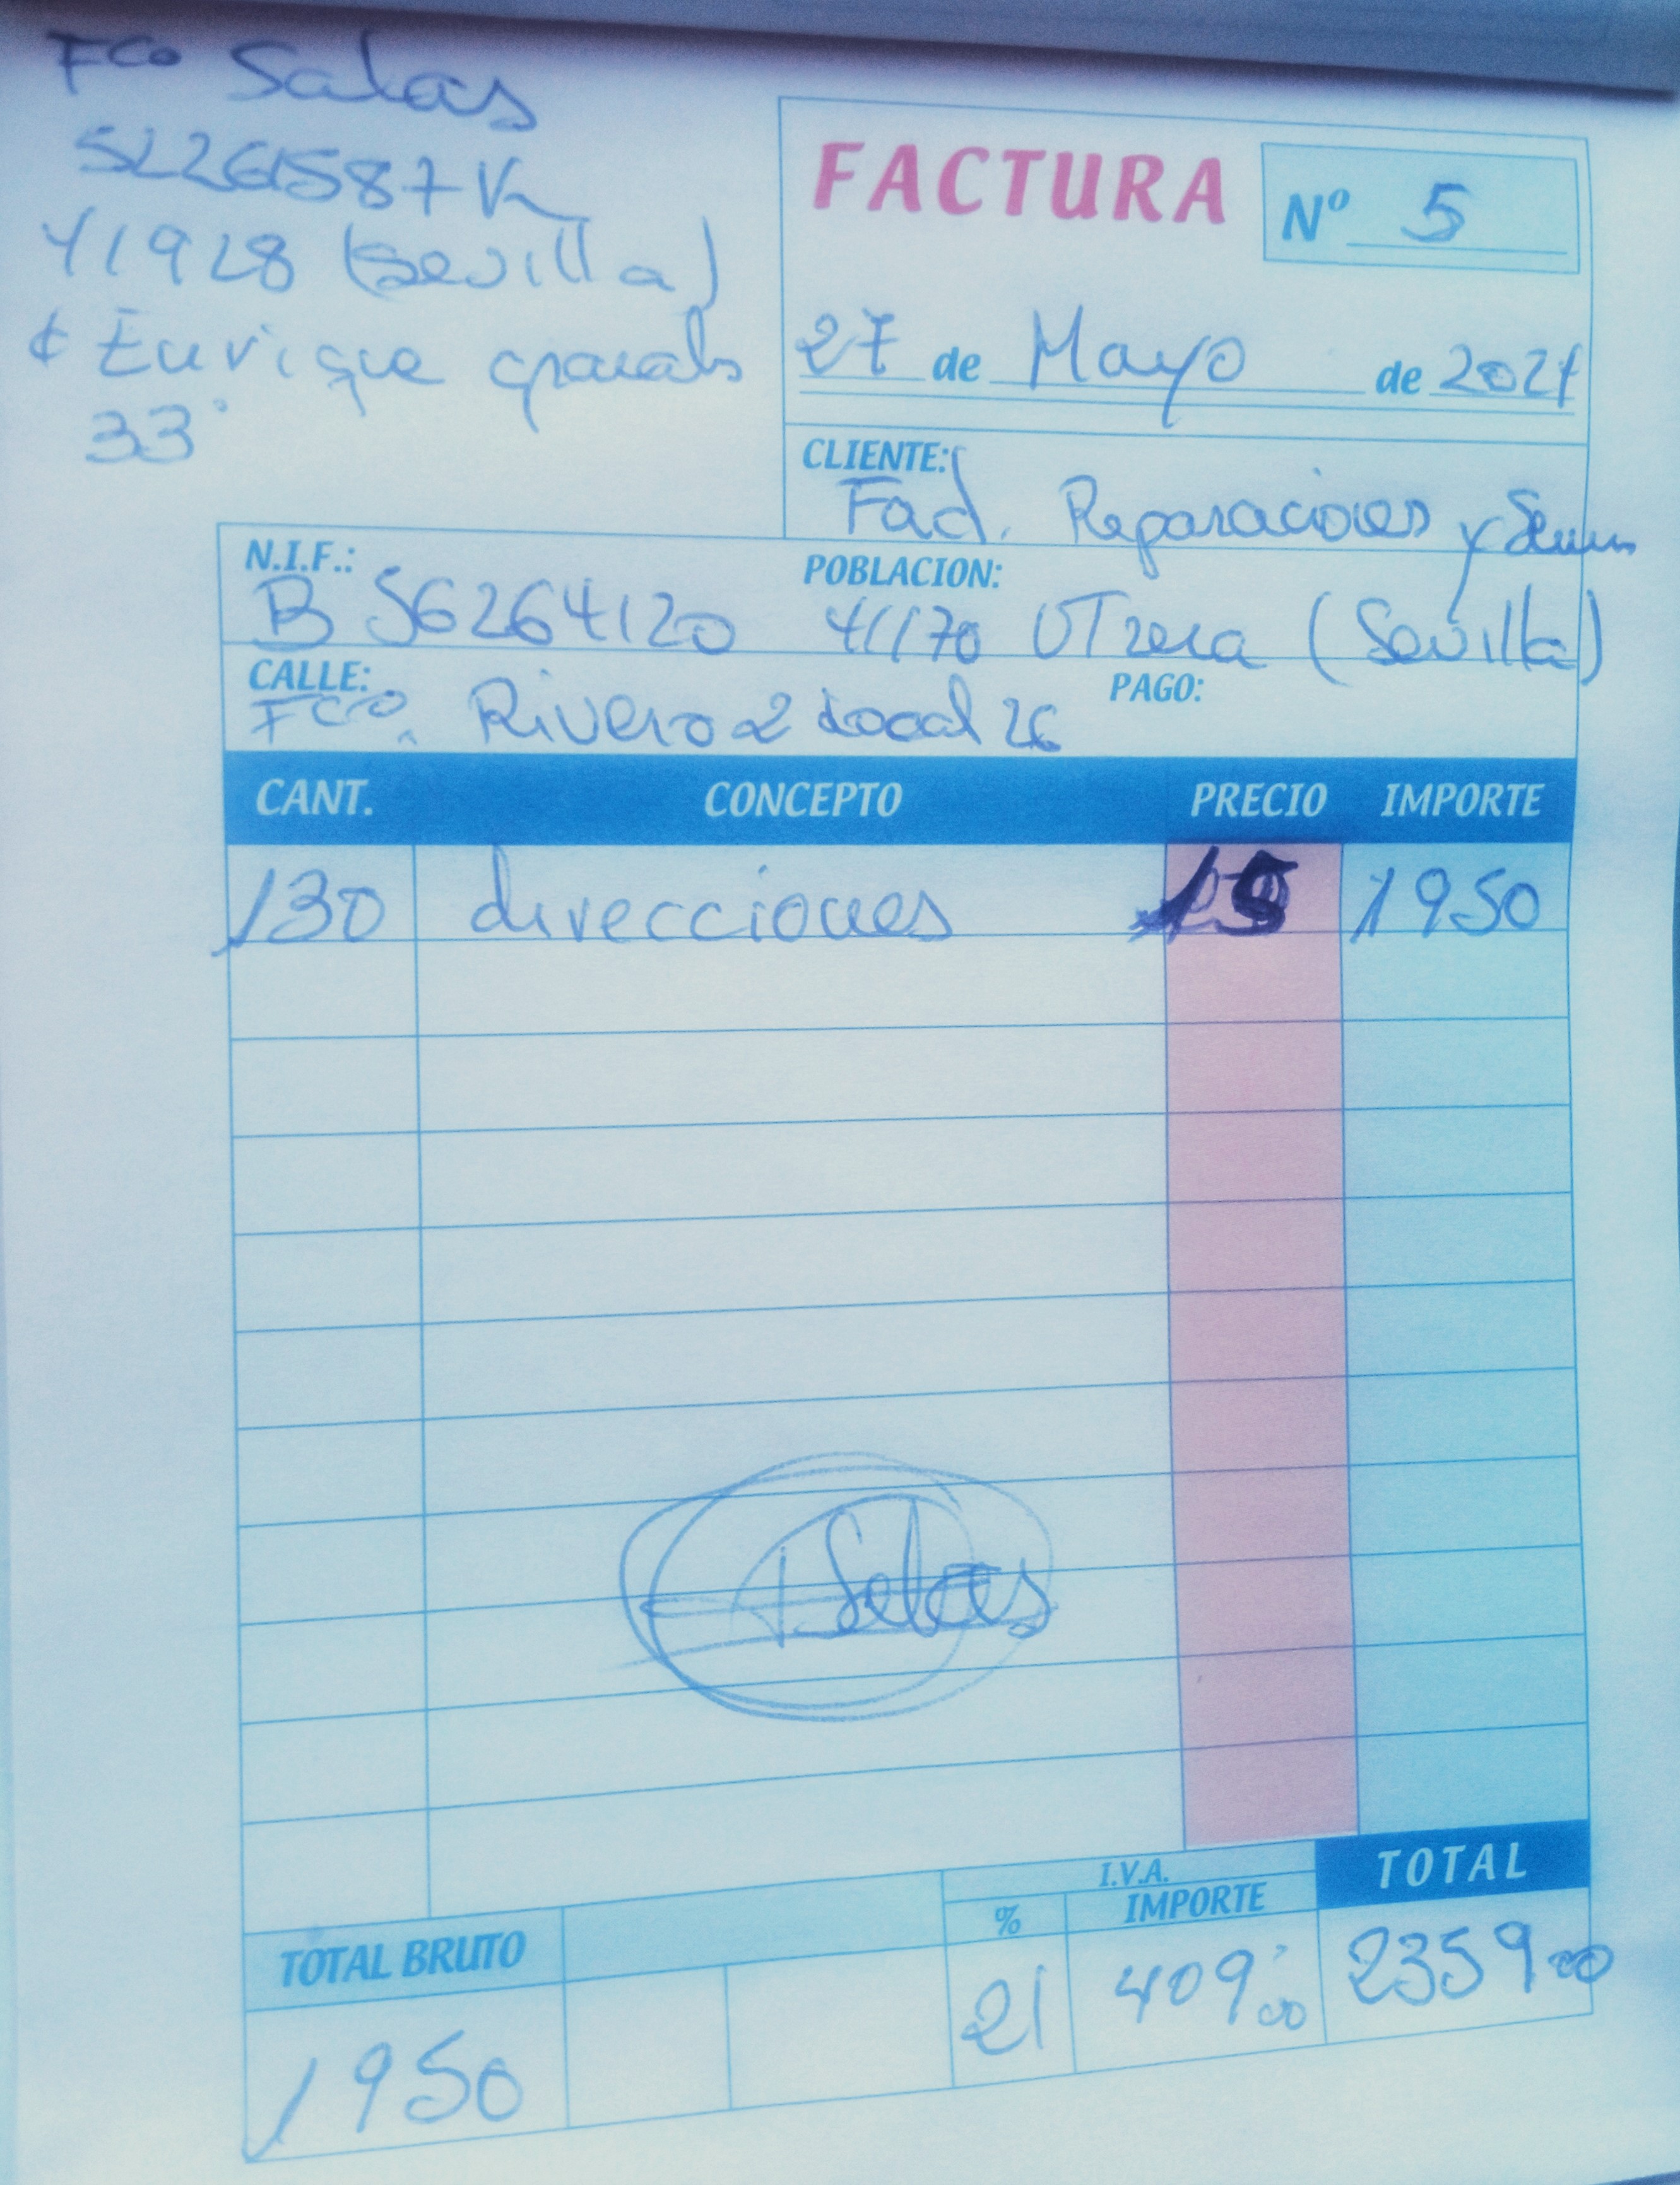 Fco Salas
52261587K
41928 (Sevilla)
c/ Enrique
33
FACTURA
Nº 5
27 de Mayo de 2021
CLIENTE:
Fad. Reparaciones y
N.I.F.: POBLACION:
B 56264120 41170 UTrera (Sevilla)
CALLE: PAGO:
Fco. Rivero 2 Local 26
CANT. CONCEPTO PRECIO IMPORTE
130 direcciones 15 1950
Salas
I.V.A. TOTAL
TOTAL BRUTO % IMPORTE
1950 21 409,00 2359,00